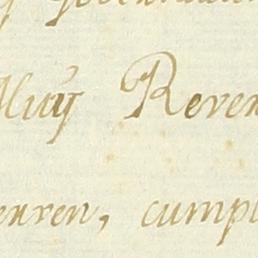 Muÿ Reven
enren, cumpl